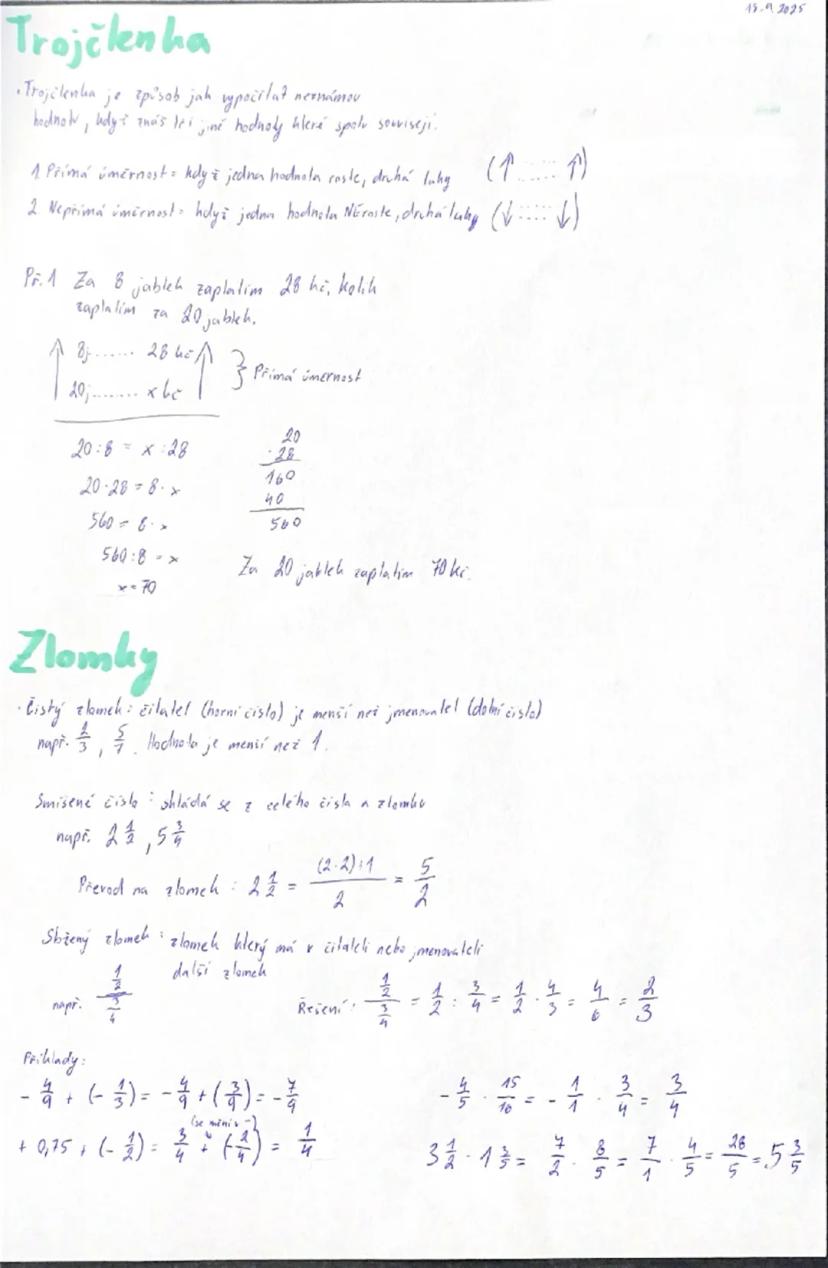 18.9.2025
Trojčlenka
• Trojčlenka je způsob jak vypočítat neznámou
hodnotu, když znáš tři jiné hodnoty které spolu souvisejí.
1 Přímá úměrnost = když jedna hodnota roste, druhá taky (↑ ...... ↑)
2 Nepřímá úměrnost = když jedna hodnota NEroste, druhá taky (↓ ...... ↓)
Př. 1 Za 8 jablek zaplatím 28 kč, kolik
zaplatím za 20 jablek.
↑ 8j ...... 28 kč ↑
20j ....... x kč } Přímá úměrnost
20 : 8 = x : 28
20 · 28 = 8 · x
560 = 8 · x
560 : 8 = x
x = 70
20
· 28
160
40
560
Za 20 jablek zaplatím 70 kč.
Zlomky
• Čistý zlomek: čitatel (horní číslo) je menší než jmenovatel (dolní číslo)
např. 2/3, 5/7. Hodnota je menší než 1.
Smíšené číslo: skládá se z celého čísla a zlomku
např. 2 1/2, 5 3/4
Převod na zlomek: 2 1/2 = (2·2)+1 / 2 = 5/2
Složený zlomek: zlomek který má v čitateli nebo jmenovateli
další zlomek
např. 1/2 / 3/4 Řešení: 1/2 / 3/4 = 1/2 : 3/4 = 1/2 · 4/3 = 4/6 = 2/3
Příklady:
- 4/9 + (- 1/3) = - 4/9 + (3/9) = - 7/9
(se mění v -)
+ 0,75 + (- 1/2) = 3/4 + (- 2/4) = 1/4
- 4/5 · 15/16 = - 1/1 · 3/4 = 3/4
3 1/2 · 1 3/5 = 7/2 · 8/5 = 7/1 · 4/5 = 28/5 = 5 3/5